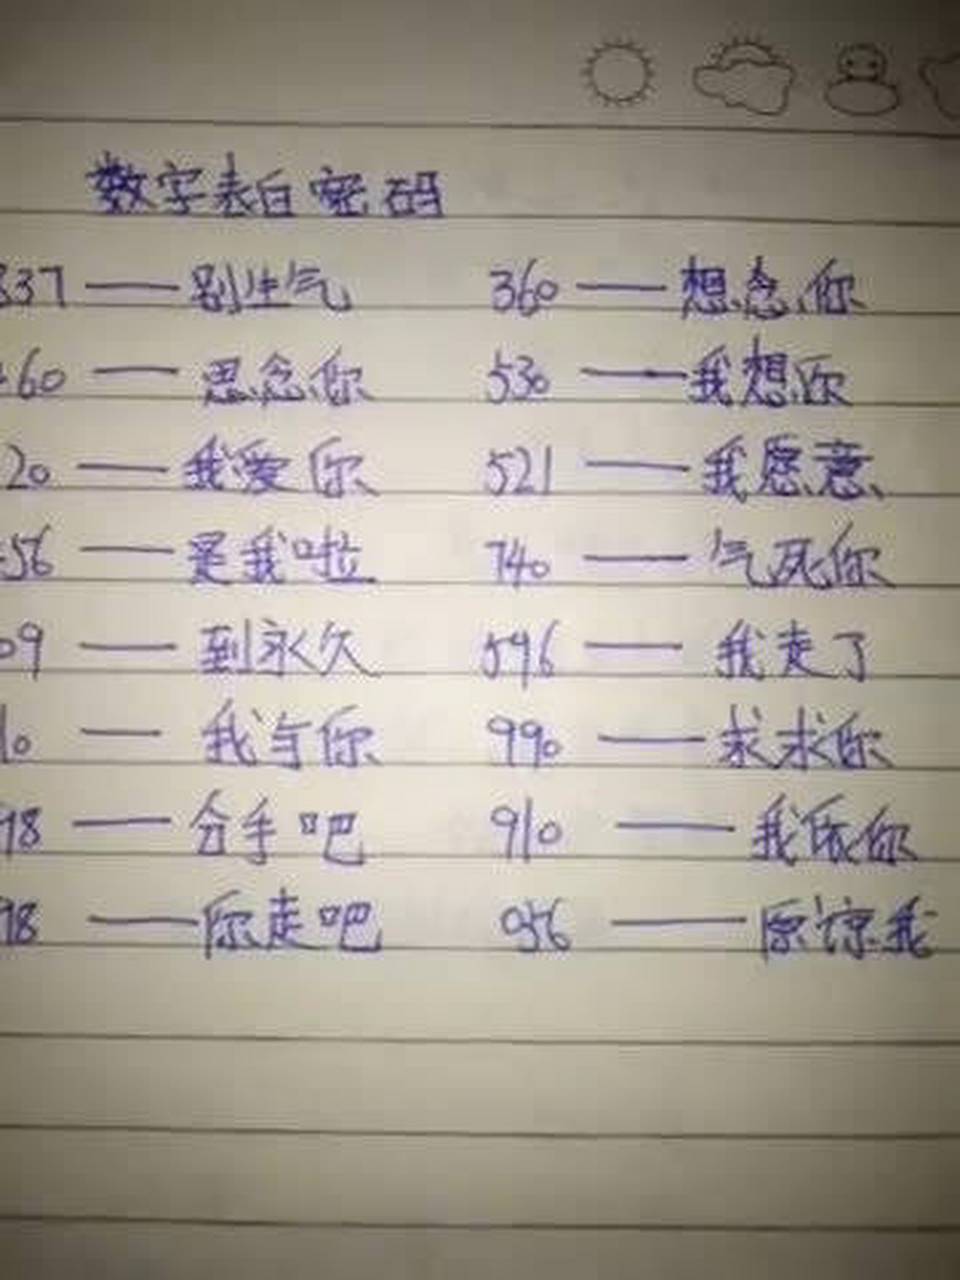 数字表白密码
837 —— 别生气 360 —— 想念你
460 —— 思念你 530 —— 我想你
20 —— 我爱你 521 —— 我愿意
456 —— 是我啦 740 —— 气死你
09 —— 到永久 596 —— 我走了
10 —— 我与你 990 —— 求求你
98 —— 分手吧 910 —— 我依你
98 —— 你走吧 956 —— 原谅我